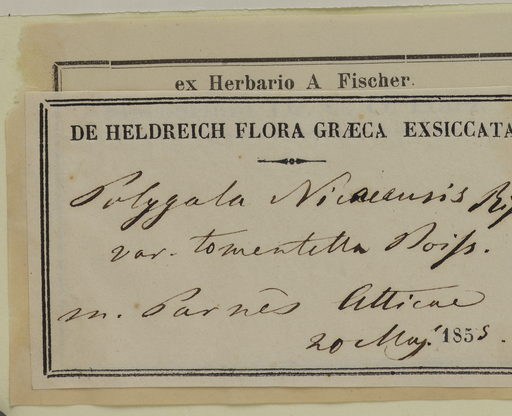 ex Herbario A Fischer.
DE HELDREICH FLORA GRÆCA EXSICCATA
Polygala Nicaeensis
var. tomentella Boiss.
m. Parnês Atticae
20 Maj. 1855.